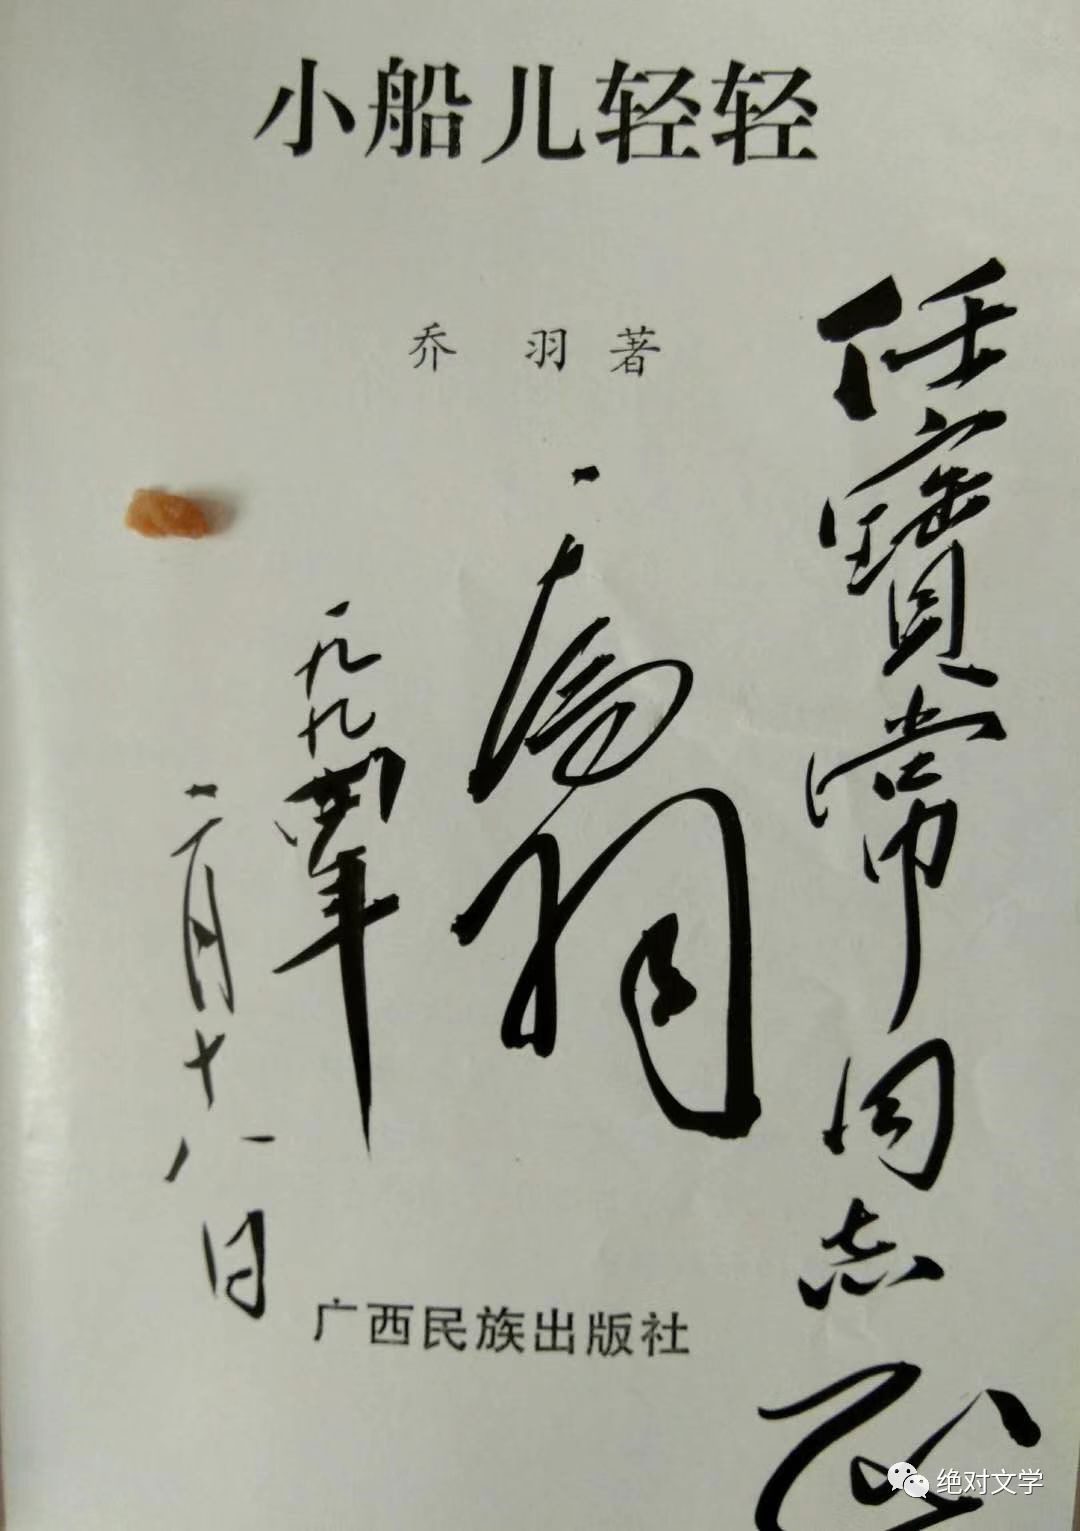 小船儿轻轻
乔 羽 著
任寶常同志
正
喬羽
一九九四年
二月十八日
广西民族出版社
绝对文学